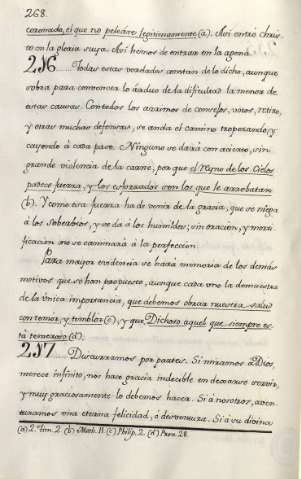 268.
coronado, el que no peleáre legitimamente (a). Asi entró Chris-
to en la gloria suya. Asi hemos de entrar en la agena.
256..... Todas estas verdades constan de lo dicho, aunque
sobra para convencer lo árduo de la dificultad la menor de
estas causas. Con todos los axiomas de consejos, votos, retiro,
y otras muchas defensas, se anda el camino tropezando, y
cayendo á cada paso. Ninguno se dará con acierto, sin
grande violencia de la carne, por que el reyno de los Cielos
padece fuerza, y los esforzados son los que le arrebatan
(b). Y como esta fuerza ha de venir de la gracia, que se niega
á los soberbios, y se dá á los humildes; sin oración, y morti-
ficacion no se caminará á la perfeccion.
Para mayor evidencia se hará memoria de los demás
motivos que se han propuesto, aunque cada uno la demuestra
de la única importancia, que debemos obrar nuestra salud
con temor, y temblor (c), y que Dichoso aquel que siempre es-
tá temeroso (d).
257..... Discurramos por partes. Si miramos á Dios,
merece infinito, nos hace gracia indecible en decorarse servir,
y muy graciosamente lo debemos hacer. Si á nosotros, aven-
turamos una eterna felicidad, ó desventura. Si á su divina
(a) 2. Tim. 2. (b) Math. 11. (c) Philip. 2. (d) Prov. 28.